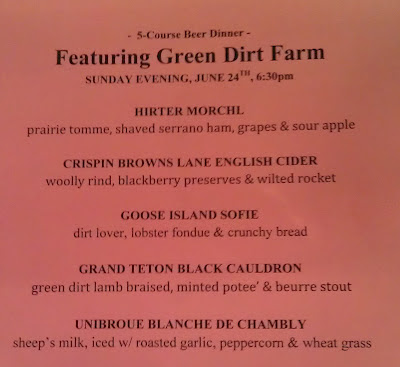 - 5-Course Beer Dinner -
Featuring Green Dirt Farm
SUNDAY EVENING, JUNE 24TH, 6:30pm
HIRTER MORCHL
prairie tomme, shaved serrano ham, grapes & sour apple
CRISPIN BROWNS LANE ENGLISH CIDER
woolly rind, blackberry preserves & wilted rocket
GOOSE ISLAND SOFIE
dirt lover, lobster fondue & crunchy bread
GRAND TETON BLACK CAULDRON
green dirt lamb braised, minted potee' & beurre stout
UNIBROUE BLANCHE DE CHAMBLY
sheep's milk, iced w/ roasted garlic, peppercorn & wheat grass